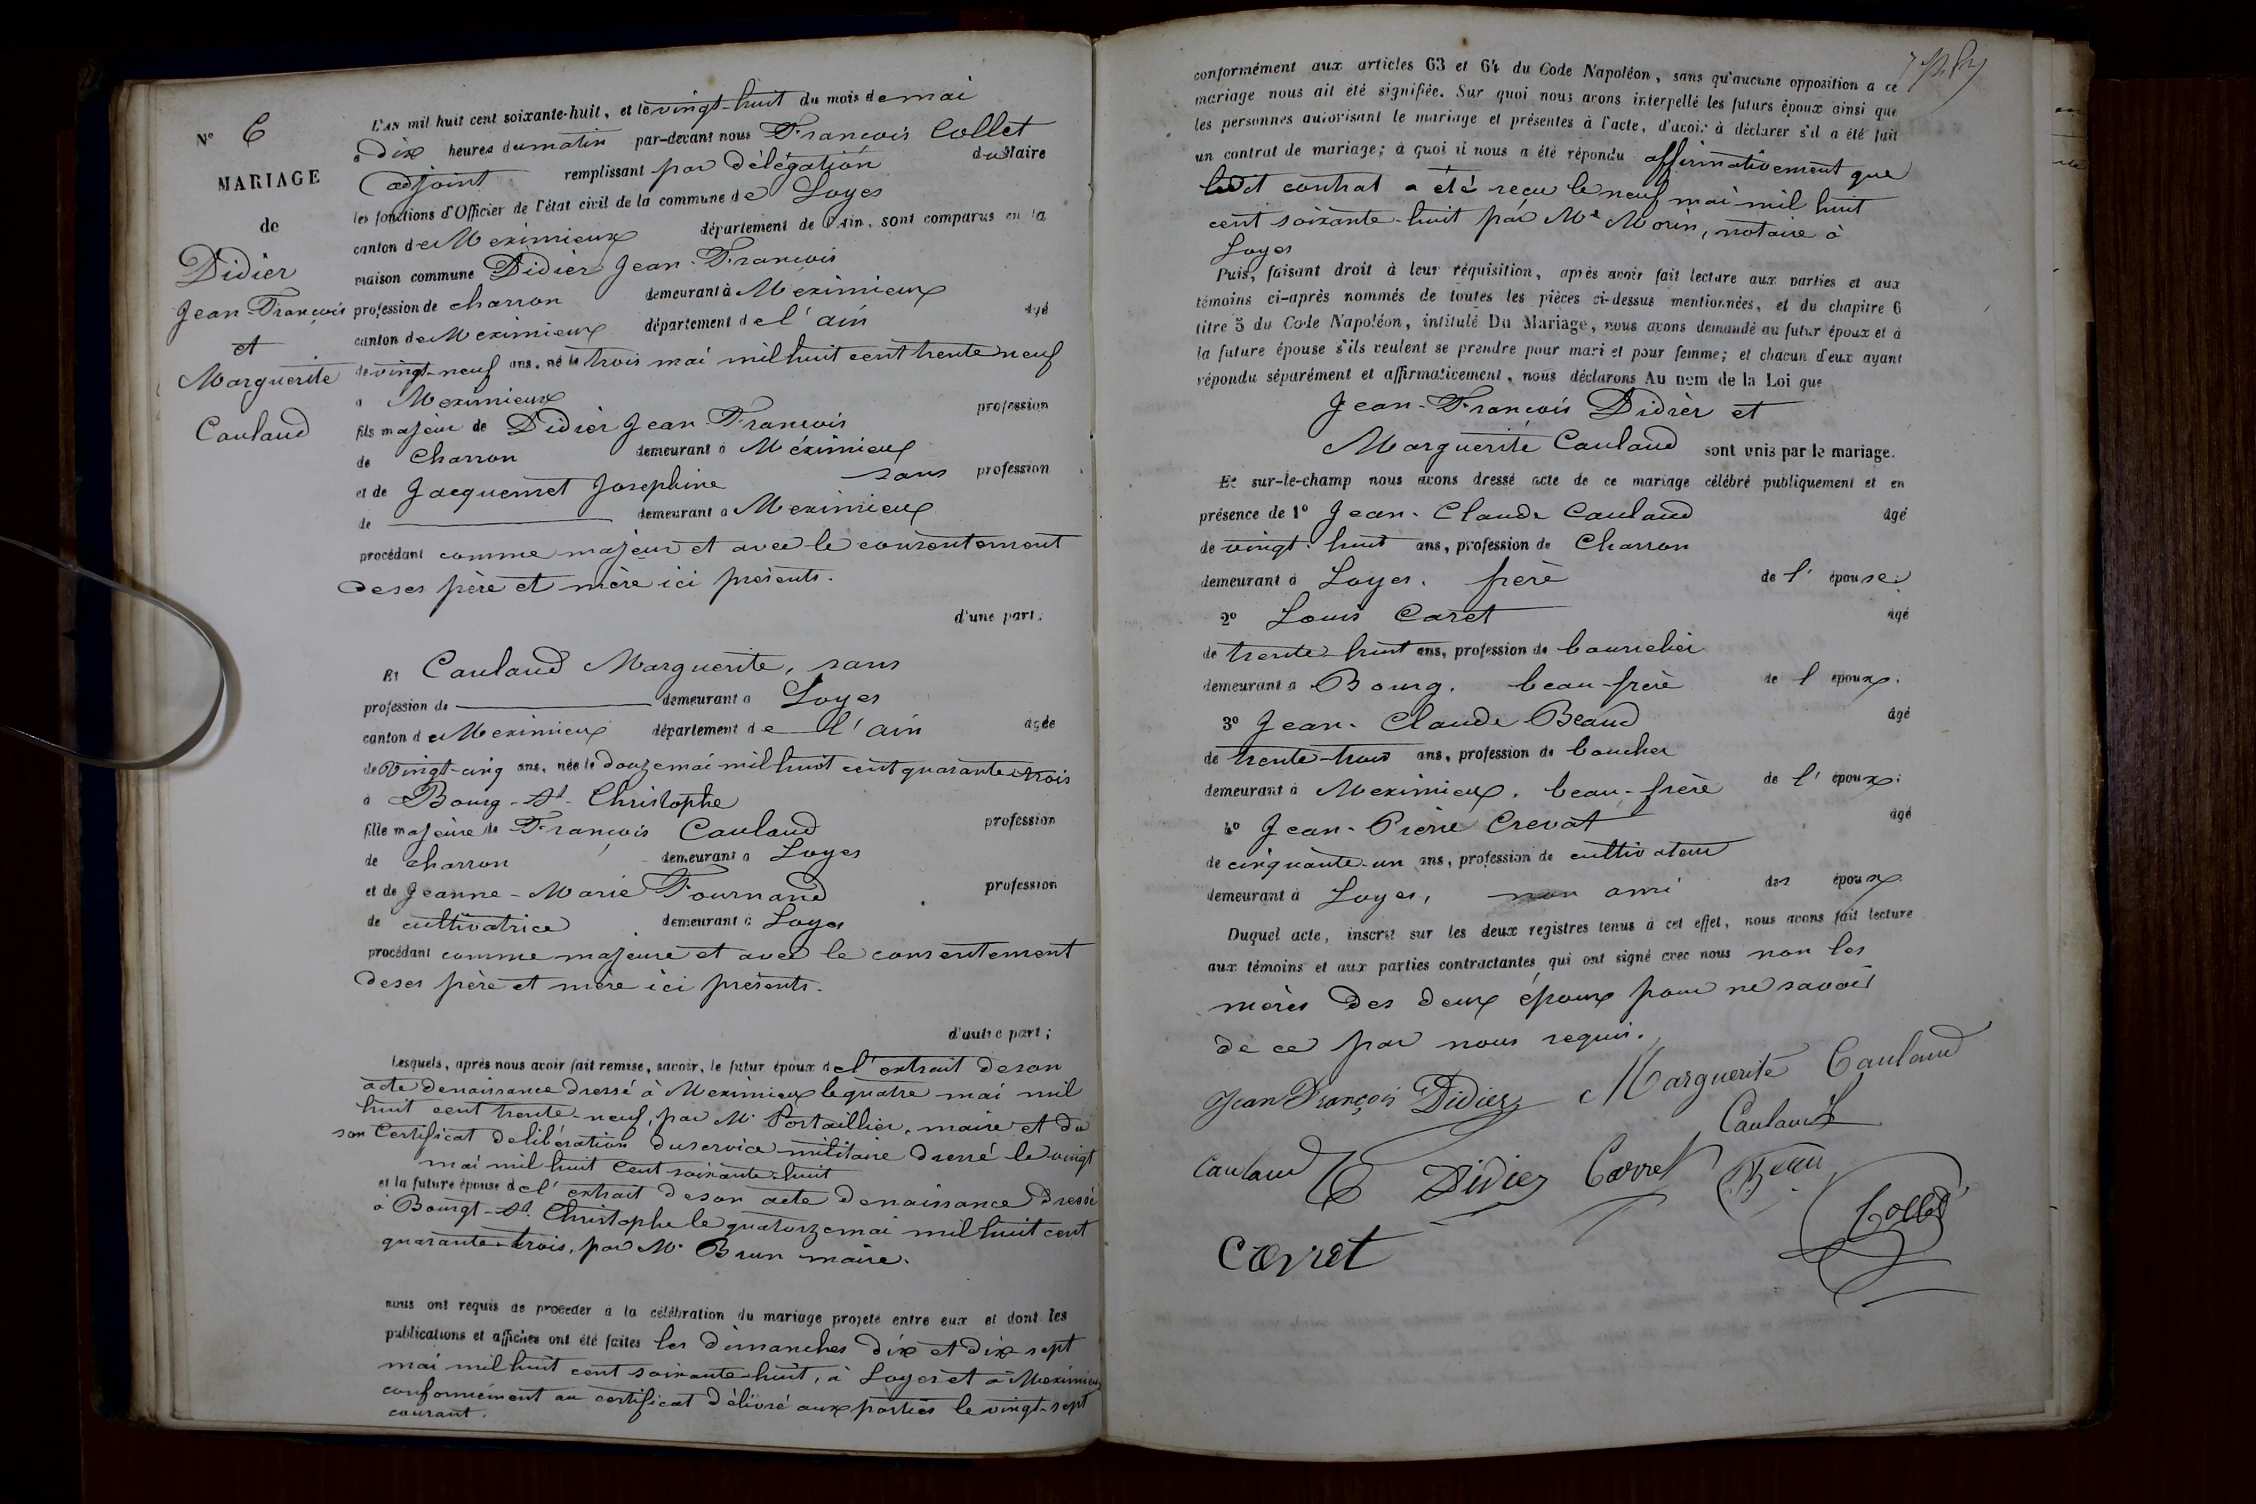 N° 6
MARIAGE
de
Didier
Jean François
et
Marguerite
Cauland
L'an mil huit cent soixante-huit, et le vingt-huit du mois de mai
à dix heures du matin par-devant nous François Collet
adjoint remplissant par délégation du Maire
les fonctions d'Officier de l'état civil de la commune de Loyes
canton de Meximieux département de l'Ain, sont comparus en la
maison commune Didier Jean-François
profession de charron demeurant à Meximieux
canton de Meximieux département de l'ain âgé
de vingt-neuf ans, né le trois mai mil huit cent trente neuf
à Meximieux
fils majeur de Didier Jean-François profession
de Charron demeurant à Méximieux
et de Jacquemet Josephine sans profession
de demeurant à Meximieux
procédant comme majeur et avec le consentement
de ses père et mère ici présents.
d'une part;
Et Cauland Marguerite, sans
profession de demeurant à Loyes
canton de Meximieux département de l'ain âgée
de Vingt-cinq ans, née le douze mai mil huit cent quarante-trois
à Bourg-St-Christophe
fille majeure de François Cauland profession
de charron demeurant à Loyes
et de Jeanne-Marie Fournand profession
de cultivatrice demeurant à Loyes
procédant comme majeure et avec le consentement
de ses père et mère ici présents.
d'autre part;
Lesquels, après nous avoir fait remise, savoir, le futur époux de l'extrait de son
acte de naissance dressé à Meximieux le quatre mai mil
huit cent trente-neuf, par Mr Portaillier, maire et du
son Certificat de libération du service militaire dressé le vingt
mai mil huit cent soixante-huit
et la future épouse de l'extrait de son acte de naissance dressé
à Bourgt-St Christophe le quatorze mai mil huit cent
quarante-trois, par Mr Brun maire.
nous ont requis de procéder à la célébration du mariage projeté entre eux et dont les
publications et affiches ont été faites les dimanches dix et dix-sept
mai mil huit cent soixante-huit, à Loyes et à Meximieux
conformément au certificat délivré aux parties le vingt-sept
courant.
conformément aux articles 63 et 64 du Code Napoléon, sans qu'aucune opposition a ce
mariage nous ait été signifiée. Sur quoi nous avons interpellé les futurs époux ainsi que
les personnes autorisant le mariage et présentes à l'acte, d'avoir à déclarer s'il a été fait
un contrat de mariage; à quoi il nous a été répondu affirmativement que
ledit contrat a été reçu le neuf mai mil huit
cent soixante-huit par Me Morin, notaire à
Loyes
Puis, faisant droit à leur réquisition, après avoir fait lecture aux parties et aux
témoins ci-après nommés de toutes les pièces ci-dessus mentionnées, et du chapitre 6
titre 5 du Code Napoléon, intitulé Du Mariage, nous avons demandé au futur époux et à
la future épouse s'ils veulent se prendre pour mari et pour femme; et chacun d'eux ayant
répondu séparément et affirmativement, nous déclarons Au nom de la Loi que
Jean-François Didier et
Marguerite Cauland sont unis par le mariage.
Et sur-le-champ nous avons dressé acte de ce mariage célébré publiquement et en
présence de 1° Jean-Claude Cauland âgé
de vingt-huit ans, profession de Charron
demeurant à Loyes. frère de l'épouse;
2° Louis Caret âgé
de trente-huit ans, profession de bourrelier
demeurant à Bourg. beau-frère de l'époux;
3° Jean-Claude Beaud âgé
de trente-trois ans, profession de boucher
demeurant à Meximieux. beau-frère de l'époux;
4° Jean-Pierre Crevat âgé
de cinquante-un ans, profession de cultivateur
demeurant à Loyes, non ami des époux
Duquel acte, inscrit sur les deux registres tenus à cet effet, nous avons fait lecture
aux témoins et aux parties contractantes qui ont signé avec nous non les
mères des deux époux pour ne savoir
de ce par nous requis.
Jean François Didier Marguerite Cauland
Cauland
Cauland Didier Carret Beau
Collet
Carret